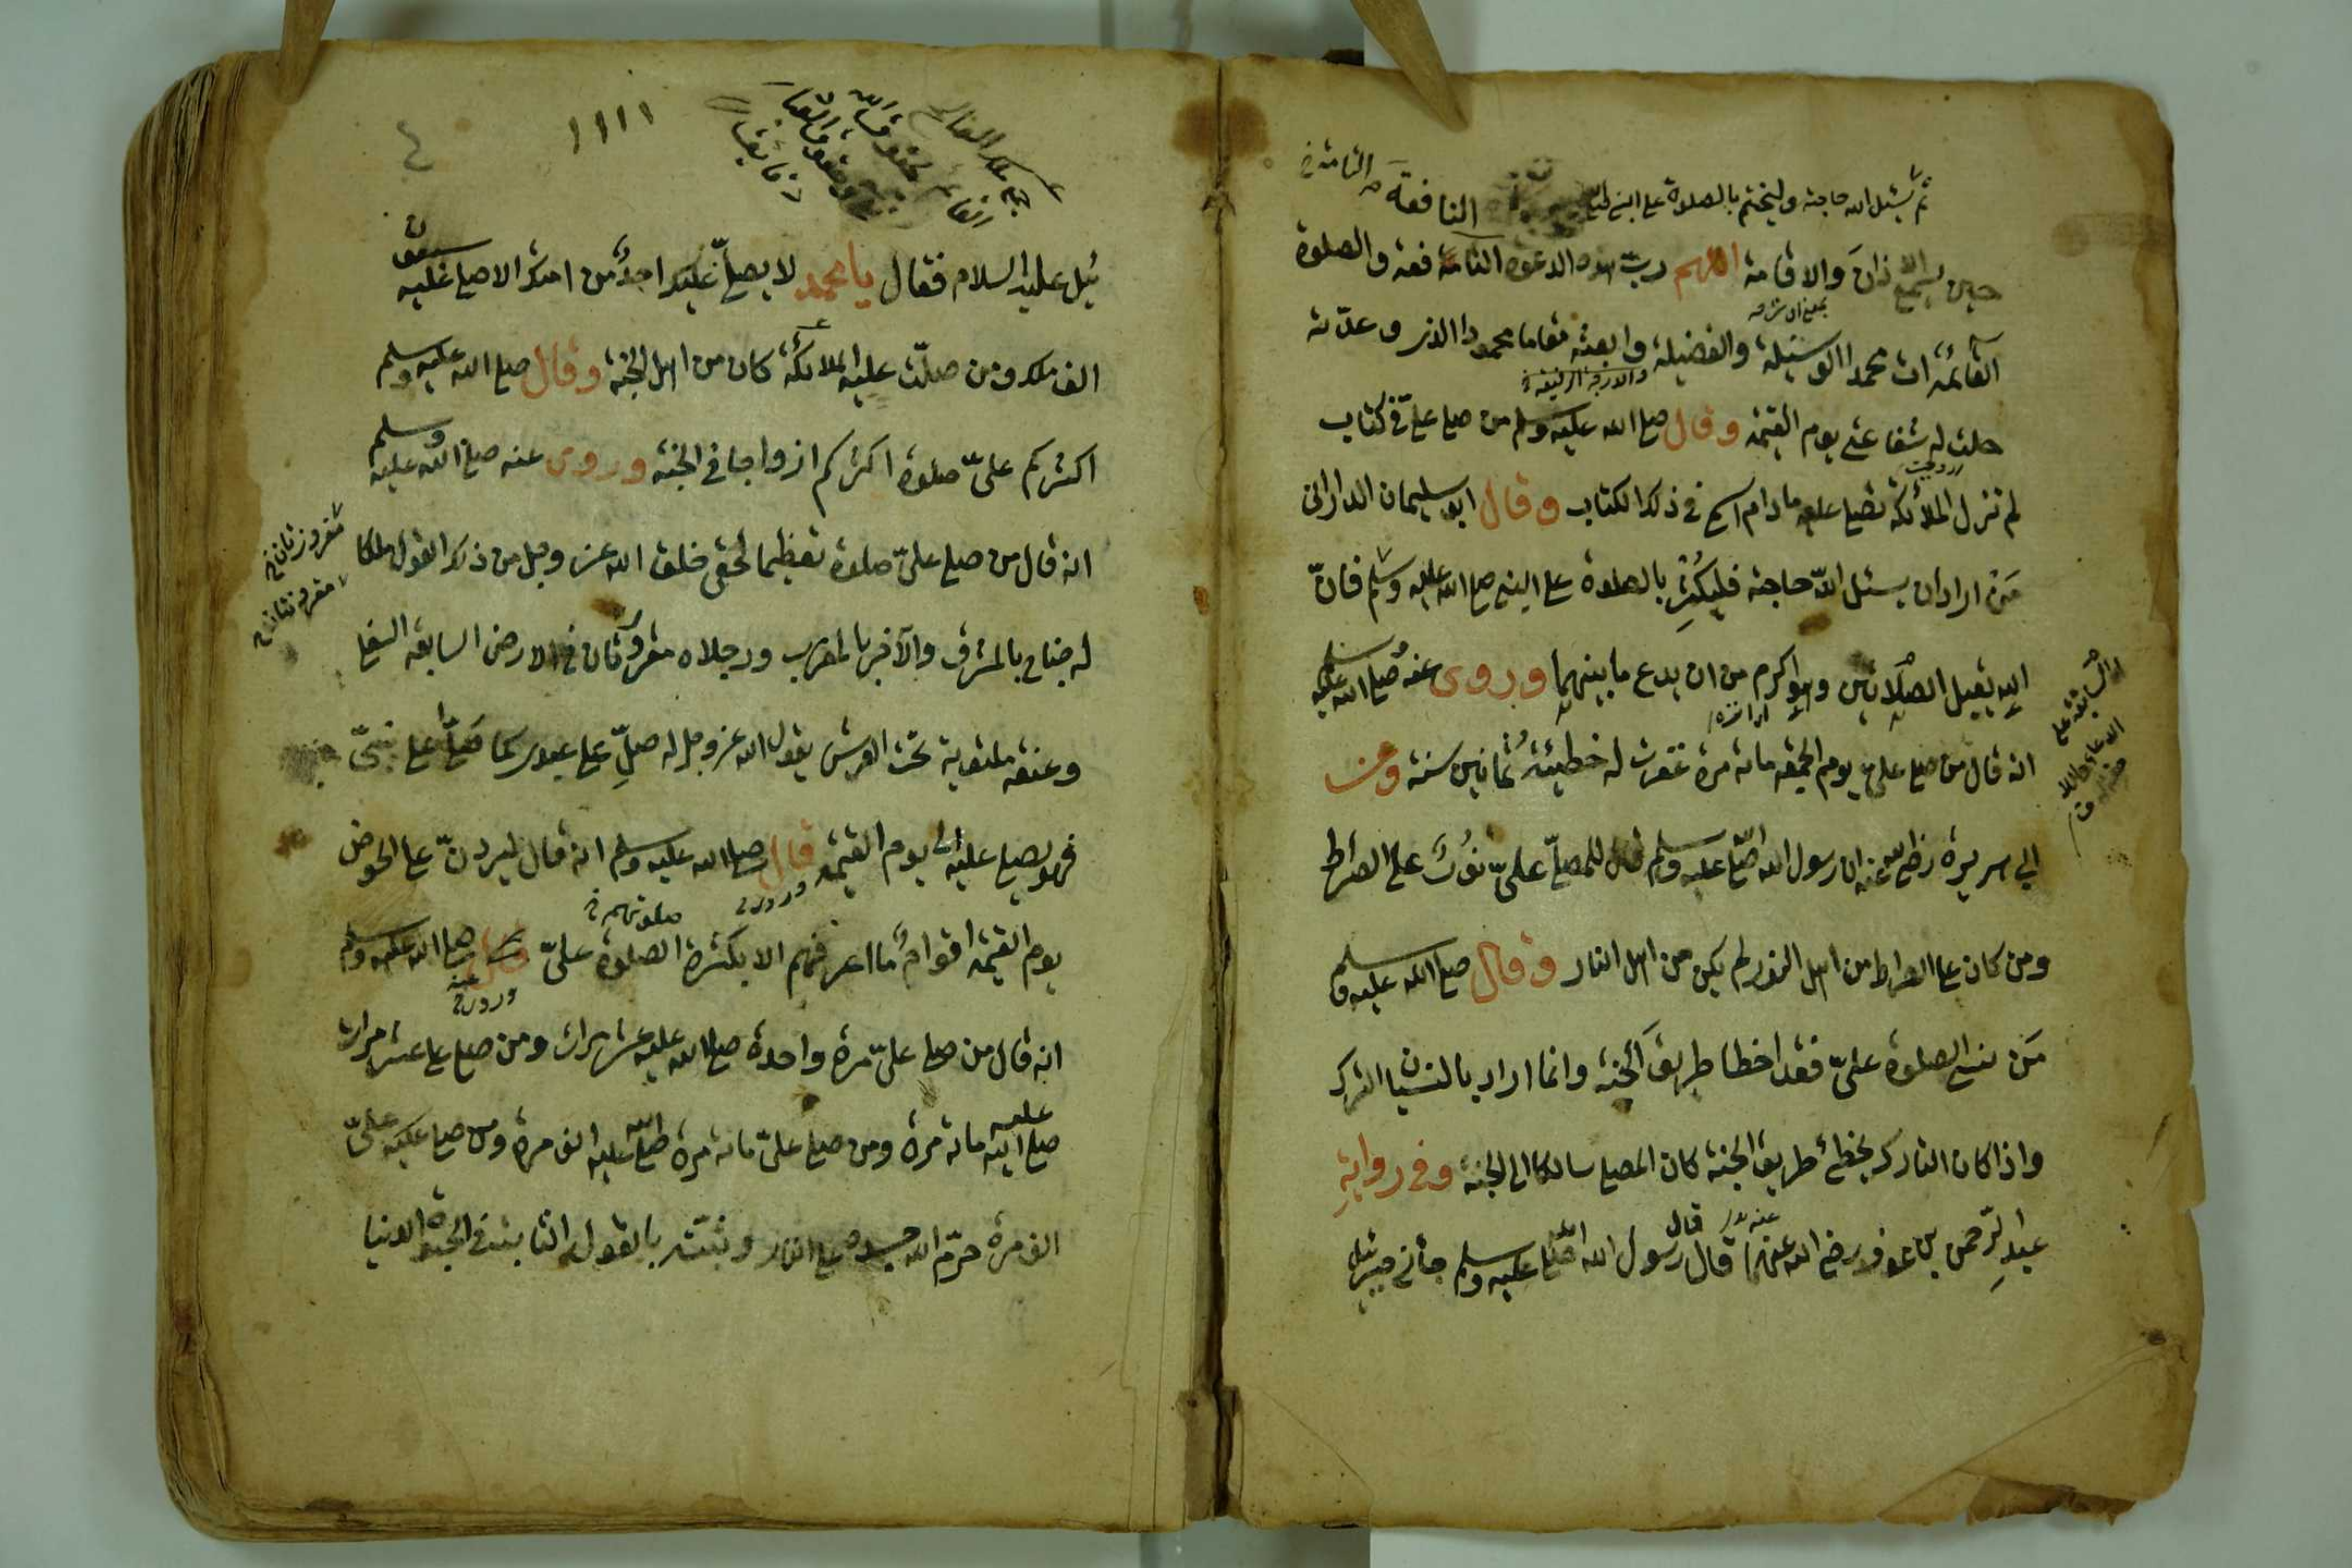 ثم يسئل الله حاجته وليختم بالصلوة على النبي
النافعة
التامة
حين يسمع الاذان والاقامة اللهم رب هذه الدعوة النافعة والصلوة
القائمة ات محمدا الوسيلة والفضيلة وابعثه مقاما محمودا الذى وعدته
والدرجة الرفيعة
حلت له شفاعتى يوم القيمة وقال صلى الله عليه وسلم من صلى علىّ فى كتاب
لم تزل الملائكة تصلى عليه مادام اسمى فى ذلك الكتاب وقال ابو سليمان الدارانى
مَن اراد ان يسئل الله حاجته فليُكثِر بالصلوة على النبى صلى الله عليه وسلم فانّ
الله يقبل الصلاتين وهو اكرم من ان يدع ما بينهما وروى عنه صلى الله عليه
انه قال من صلى علىّ يوم الجمعة مائة مرة غفرت له خطيئة ثمانين سنة وعن
ابى هريرة رضى الله عنه ان رسول الله صلى الله عليه وسلم قال للمصلّى علىّ نورٌ على الصراط
ومن كان على الصراط من اهل النور لم يكن من اهل النار وقال صلى الله عليه وسلم
مَن نسى الصلوة علىّ فقد اخطا طريق الجنة وانما اراد بالنسيان الترك
واذا كان التارك يخطئ طريق الجنة كان المصلى سالكا الى الجنة وفى روايةِ
عبدِ الرّحمن بن عوف رضى الله عنهما قال قال رسول الله صلى الله عليه وسلم جائنى جبرئيل
١١١١
٤
ئيل عليه السلام فقال يا محمد لا يصلّى عليك احدٌ من امتك الا صلى عليه سبعون
الف ملك ومن صلّت عليه الملائكة كان من اهل الجنة وقال صلى الله عليه وسلم
اكثركم علىّ صلوة اكثركم ازواجا فى الجنة وروى عنه صلى الله عليه وسلم
انه قال من صلى علىّ صلوة تعظيما لحقى خلق الله عز وجل من ذلك القول ملكا
مغروزتان
له جناح بالمشرق والآخر بالمغرب ورجلاه مقرورتان فى الارض السابعة السفلى
وعنقه ملتوية تحت العرش يقول الله عز وجل له صلِّ على عبدى كما صلّى على نبيّى
فهو يصلى عليه الى يوم القيمة قال صلى الله عليه وسلم انه قال ليردنّ على الحوض
وروى
صلوتهم
يوم القيمة اقوامٌ ما اعرفهم الا بكثرة الصلوة علىّ قال صلى الله عليه وسلم
وروى عنه
انه قال من صلى علىّ مرة واحدة صلى الله عليه عشر مرات ومن صلى على عشر مرات
صلى الله عليه مائة مرة ومن صلى علىّ مائة مرة صلى الله عليه الف مرة ومن صلى علىّ
الف مرة حرّم الله جسده على النار وثبّته بالقول الثابت فى الحيوة الدنيا